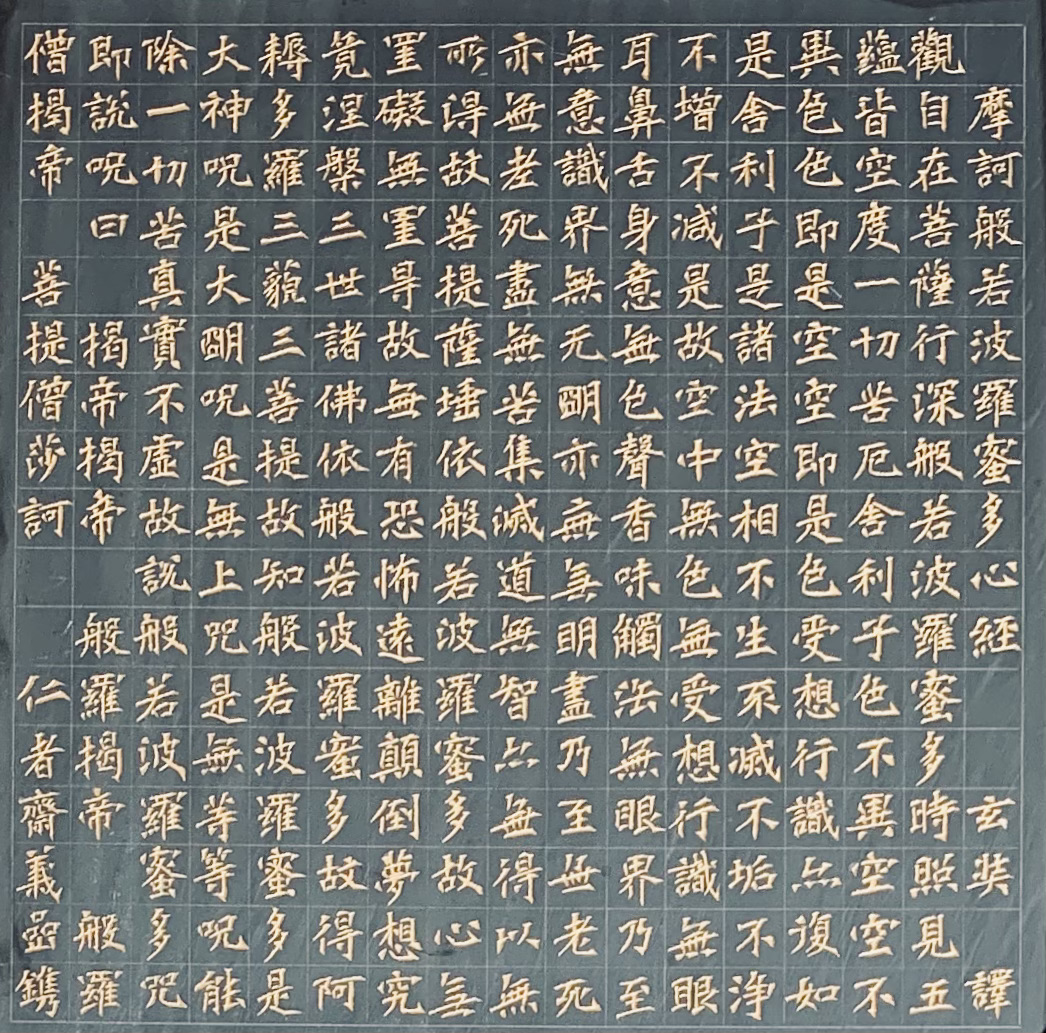 摩訶般若波羅蜜多心經 玄奘 譯
觀自在菩薩行深般若波羅蜜多時照見五
蘊皆空度一切苦厄舍利子色不異空空不
異色色即是空空即是色受想行識亦復如
是舍利子是諸法空相不生不滅不垢不淨
不增不減是故空中無色無受想行識無眼
耳鼻舌身意無色聲香味觸法無眼界乃至
無意識界無无明亦無無明盡乃至無老死
亦無老死盡無苦集滅道無智亦無得以無
所得故菩提薩埵依般若波羅蜜多故心無
罣礙無罣㝵故無有恐怖遠離顛倒夢想究
竟涅槃三世諸佛依般若波羅蜜多故得阿
耨多羅三藐三菩提故知般若波羅蜜多是
大神呪是大明呪是無上呪是無等等呪能
除一切苦真實不虛故說般若波羅蜜多咒
即說呪曰 揭帝揭帝 般羅揭帝 般羅
僧揭帝 菩提僧莎訶 仁者齋義鐫